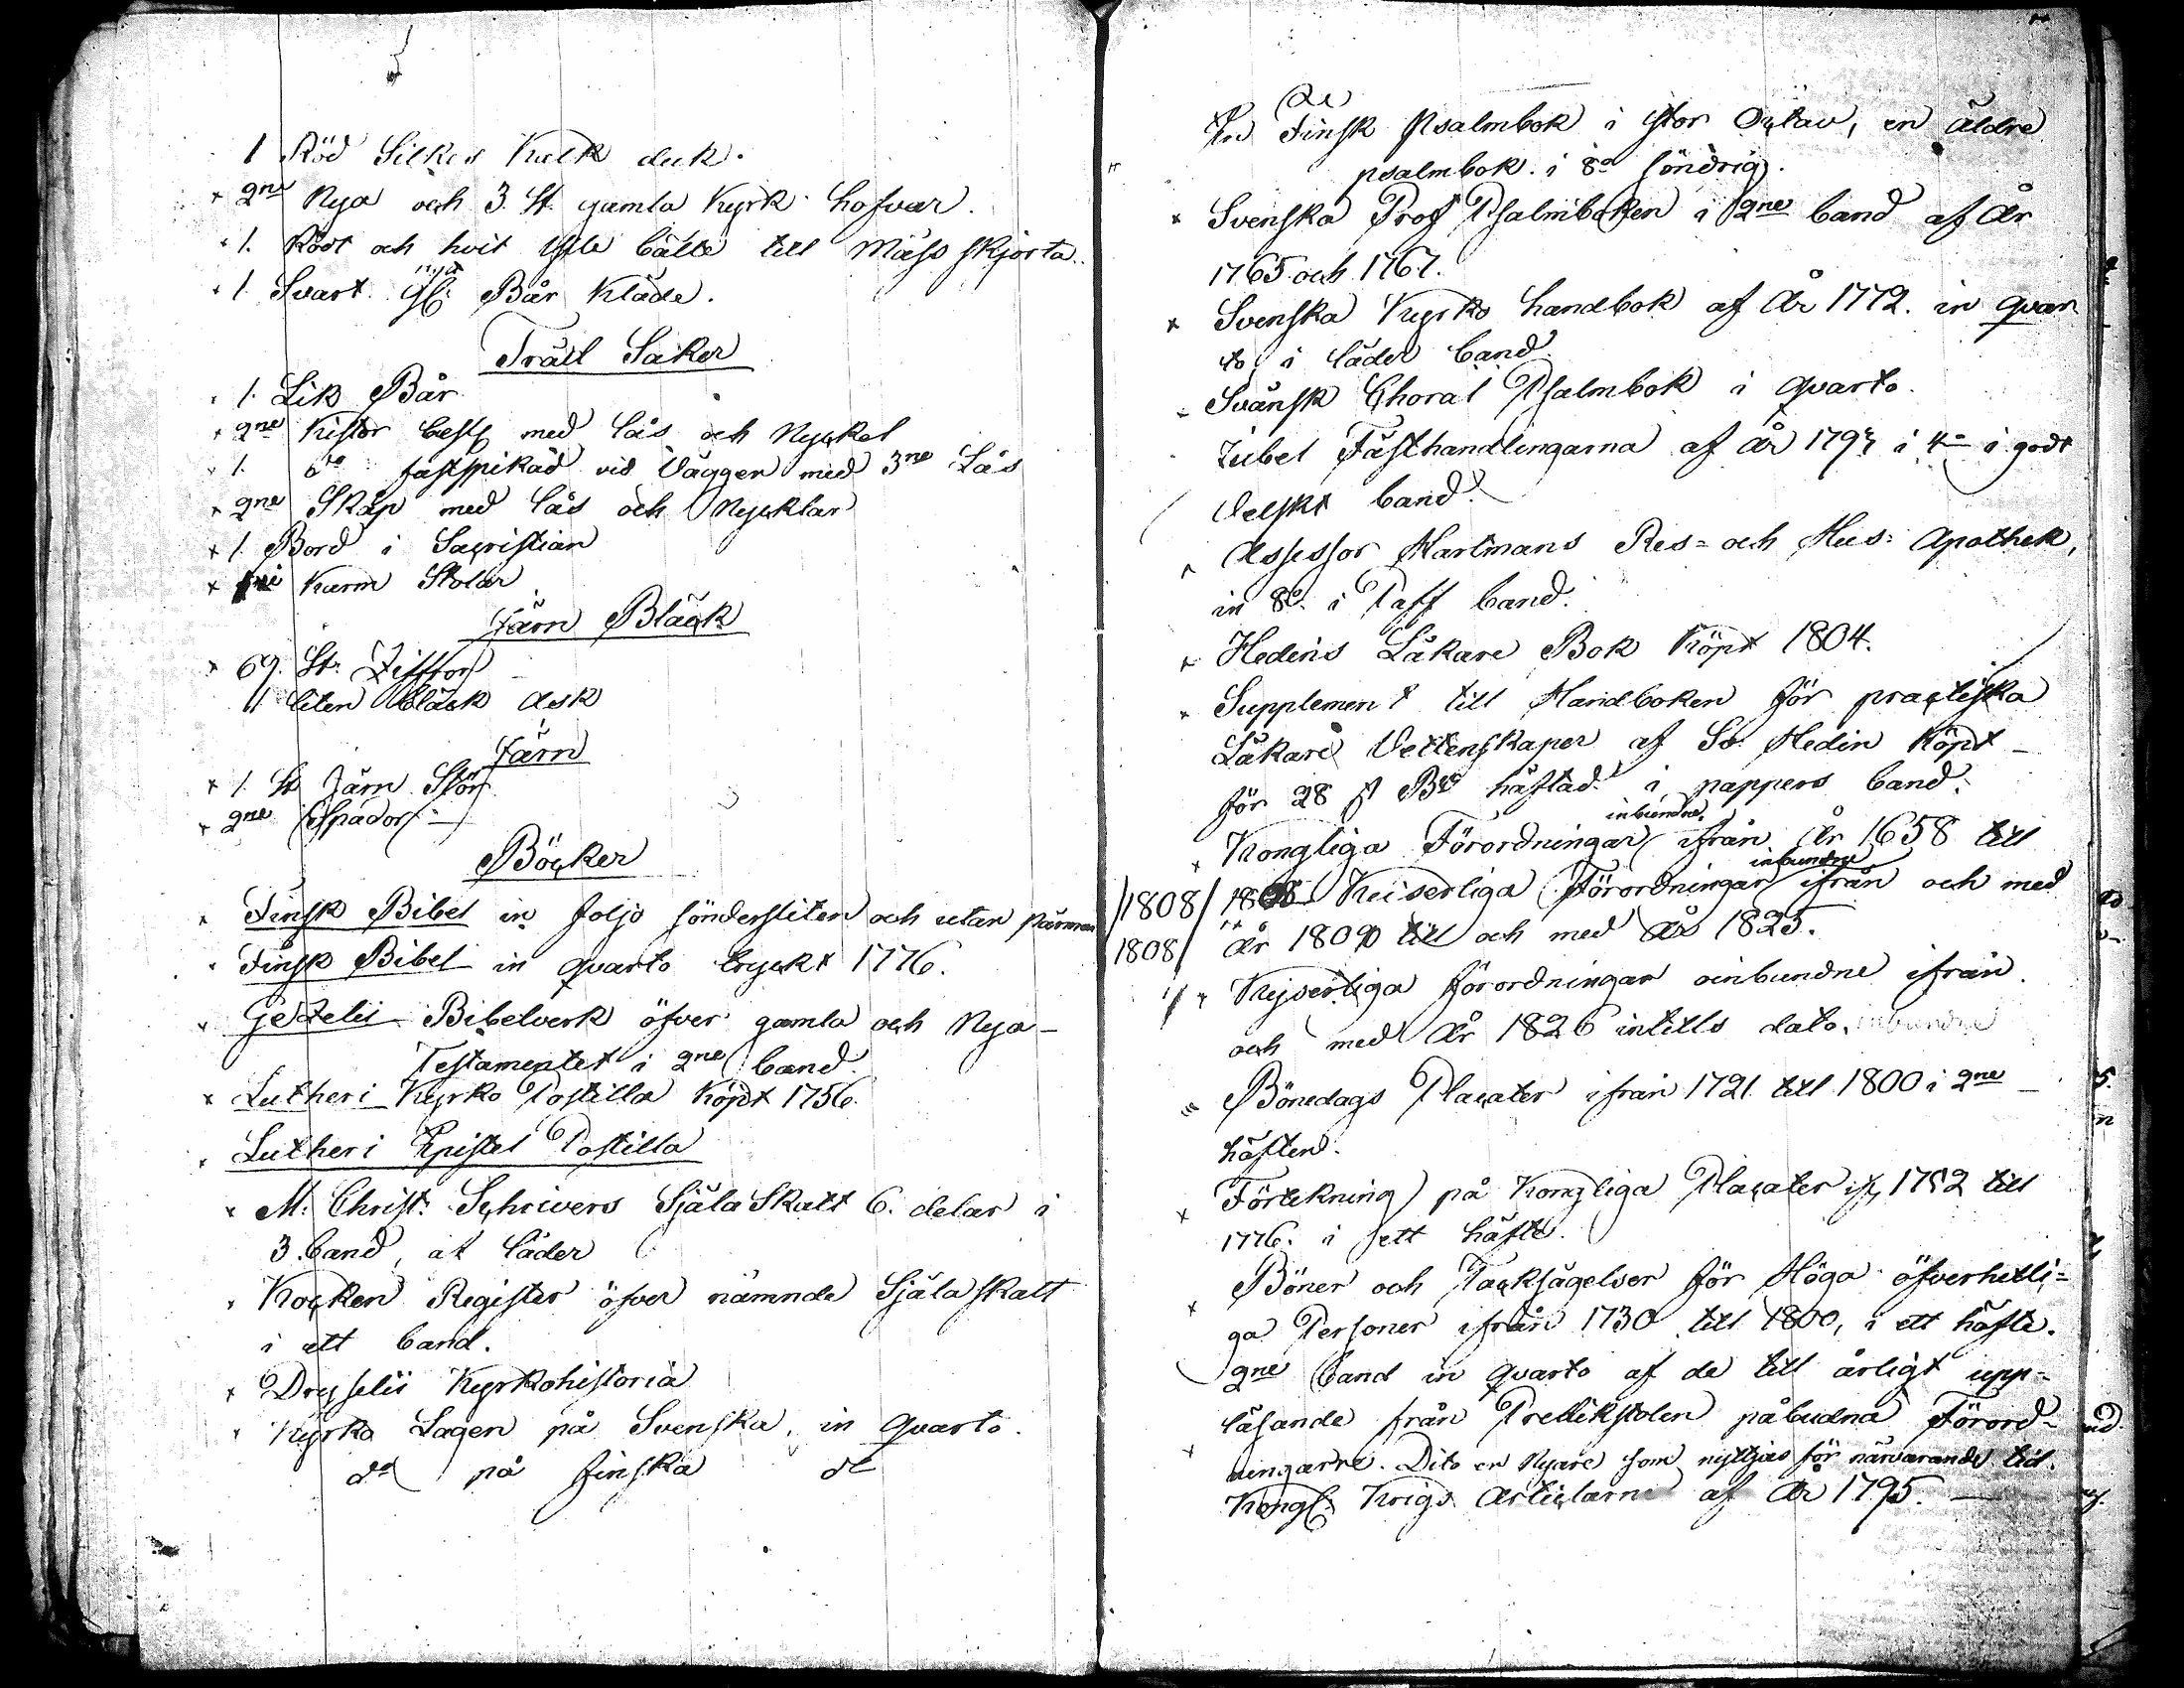 1 Röd Silkes Kalk duk.
2ne Nya och 3. St. gamla Kyrk hofvar.
1. Rödt och hvit Ylle bälte till Mäss skjorta.
nya
1 Svart Bår Kläde.
Träll Saker
1. Lik Bår
2ne Kistor med lås och Nyckel
1. do fastspikad vid Väggen med 3ne Lås
2ne Skåp med lås och Nycklar
1. Bord i Sacristian
Karm Stolar
Järn Bläck
69. St. Ziffror
1 liten bläck Ask
Järn
1. St Järn Stör
2ne Spador
Böcker
Finsk Bibel in folio söndersliten och utan pärmar
Finsk Bibel in quarto tryckt 1776.
Gezelii Bibelverk öfver gamla och Nya
Testamentet i 2ne band.
Lutheri Kyrko Postilla Köpt 1756.
Lutheri Epistel Postilla
M. Christ: Schrivers Själa Skatt 6. delar i
3. band, at läder
Kocken Register öfver nämnde Själa skatt
i ett band.
Dryselii Kyrkohistoria
Kyrko Lagen på Svenska, in Quarto.
do på finska do
En Finsk Psalmbok i stor Octav, en äldre
psalmbok i 8o söndrig.
Svenska Prof Psalmboken i 2ne band af År
1765 och 1767.
Svenska Kyrko handbok af År 1772. in quar
to i läder band
Svänsk Choral Psalmbok i quarto.
Jubel Fästhandlingarna af År 1793 i 4o i godt
Velskt band.
Assessor Hartmans Res= och Hus: Apothek,
in 8o. i Papp band.
Hedins Läkare Bok Köpt 1804.
Supplement till Handboken för practiska
Läkare Vettenskaper af Sv. Hedin Köpt
för 28 ß Bco häftad i pappers band.
inbundne
Kongliga Förordningar ifrån År 1658 till
inbundne
/1808/ 1808 Keiserliga Förordningar ifrån och med
1808/ År 1809 till och med År 1825.
Kejserliga förordningar oinbundne ifrån
och med År 1826 intills dato. inbundne
Bönedags Placater ifrån 1721 till 1800 i 2ne
häften.
Förtekning på Kongliga Placater 1752 till
1776. i ett häfte.
Böner och Tacksägelser för Höga öfverhetli=
ga Personer ifrån 1730 till 1800, i ett häfte.
2ne band in quarto af de till årligt upp=
läsande från Predikstolen påbudna Förord=
ningarne. Dito en Nyare som nyttjas för närvarande tid.
Kongl. Krigs Articlarne af År 1795.